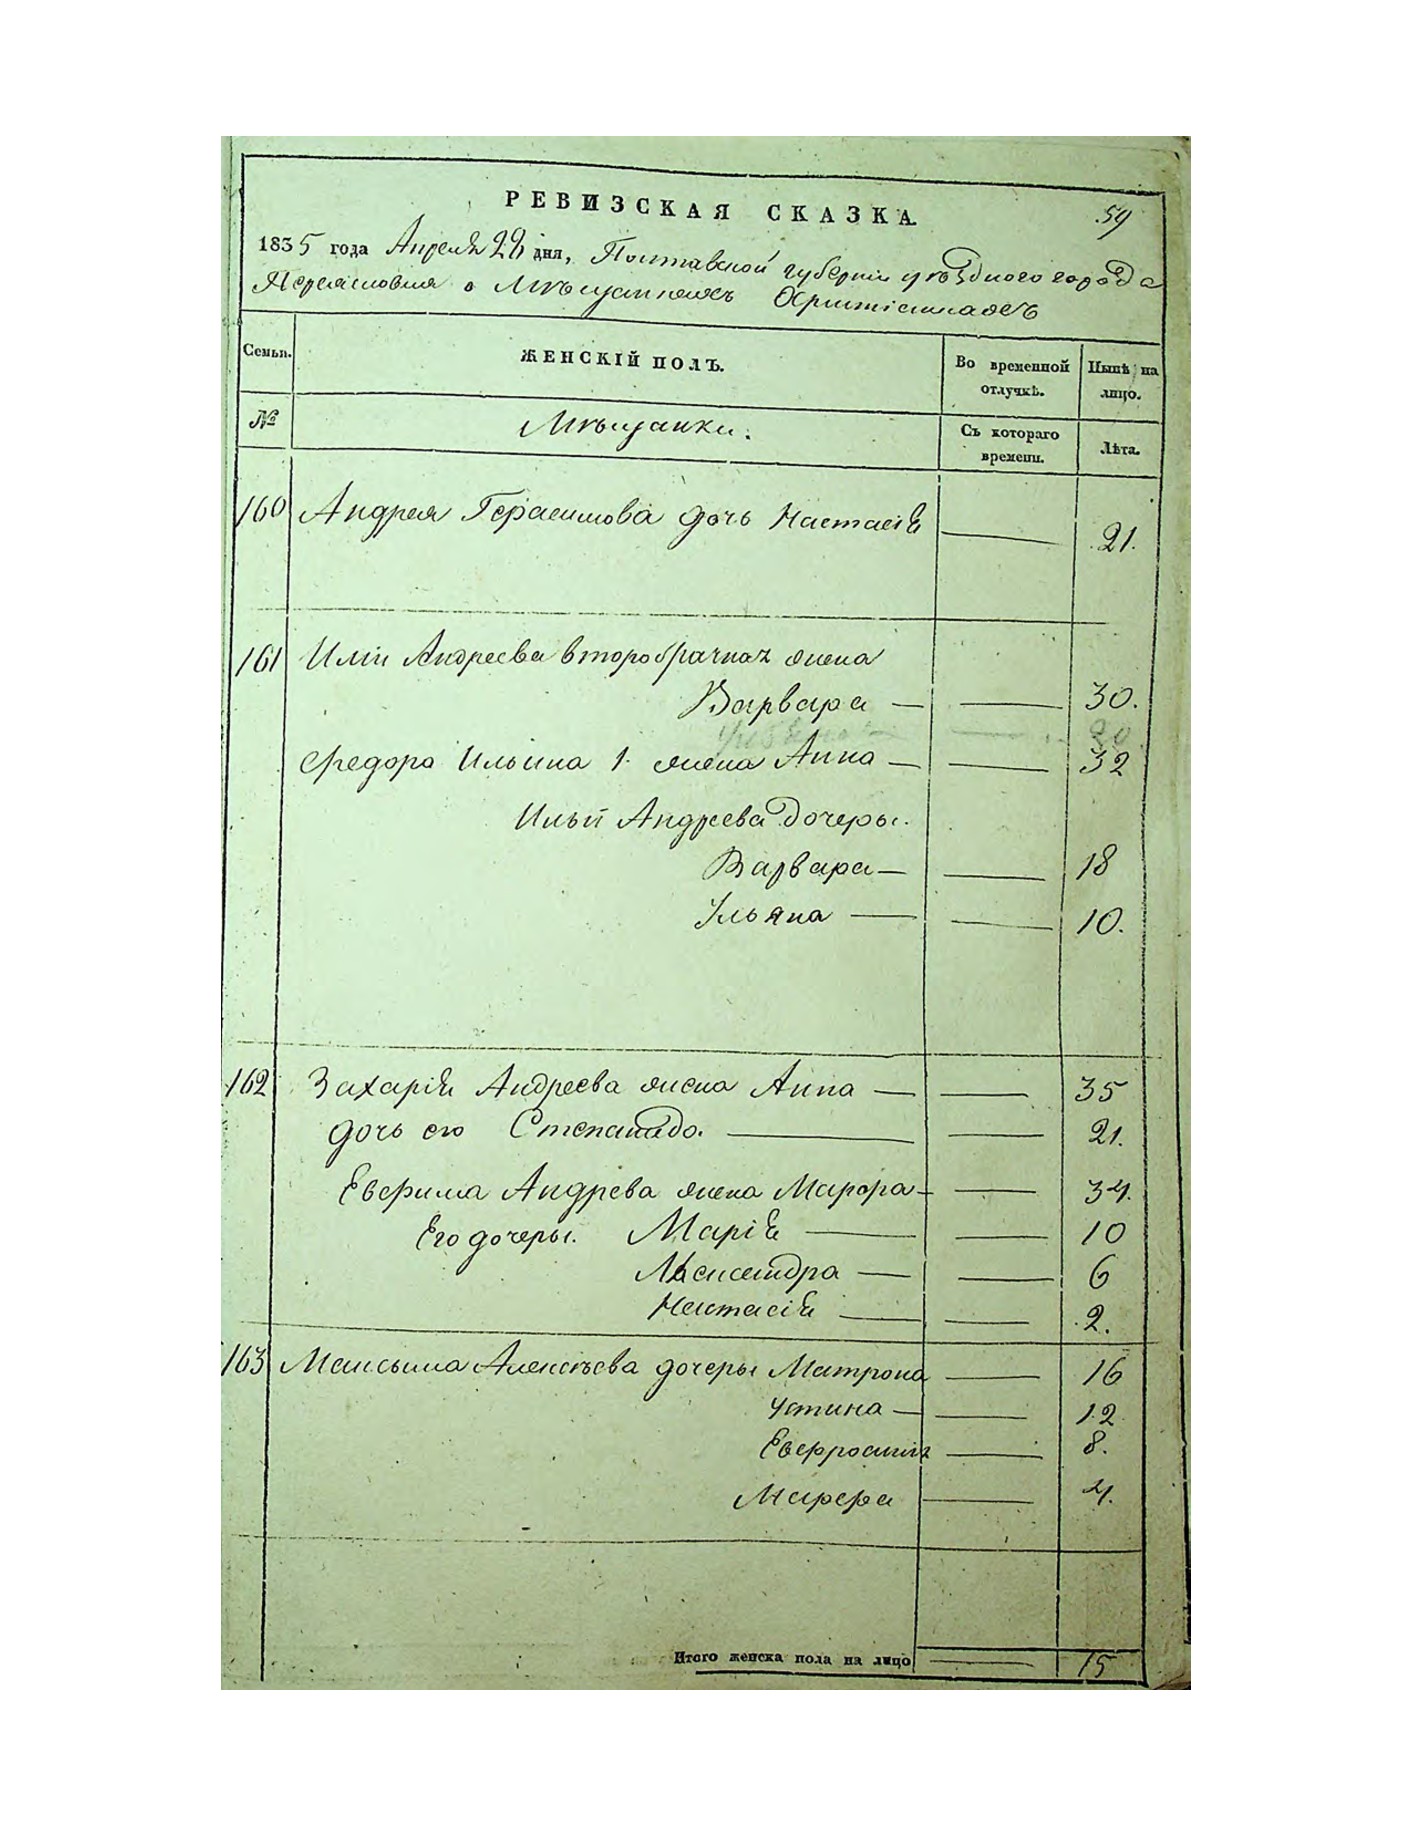 РЕВИЗСКАЯ СКАЗКА.
59
1835 года Апреля 28 дня, Полтавской губернии уѣздного города
Переяславля о Мѣщанахъ Христіанахъ
Семьи. ЖЕНСКІЙ ПОЛЪ. Во временной отлучкѣ. Нынѣ на лицо.
№ Мѣщанки. Съ котораго времени. Лѣта.
160 Андрея Герасимова дочь Настасія 21.
161 Иліи Андреева второбрачная жена
Варвара — 30.
Федора Ильина 1. жена Анна — 32
Ильи Андреева дочеры.
Варвара — 18
Ульяна — 10.
162 Захарія Андреева жена Анна — 35
дочь его Степанида. 21.
Евфима Андрева жена Марфа — 34.
Его дочеры. Марія 10
Александра — 6
Настасія 2.
163 Максыма Алексѣева дочеры Матрона 16
Устина — 12
Евфросинія 8.
Марфа 4.
Итого женска пола на лицо 15